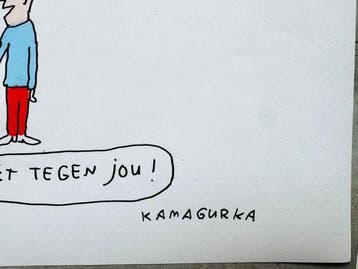 ET TEGEN JOU!
KAMAGURKA